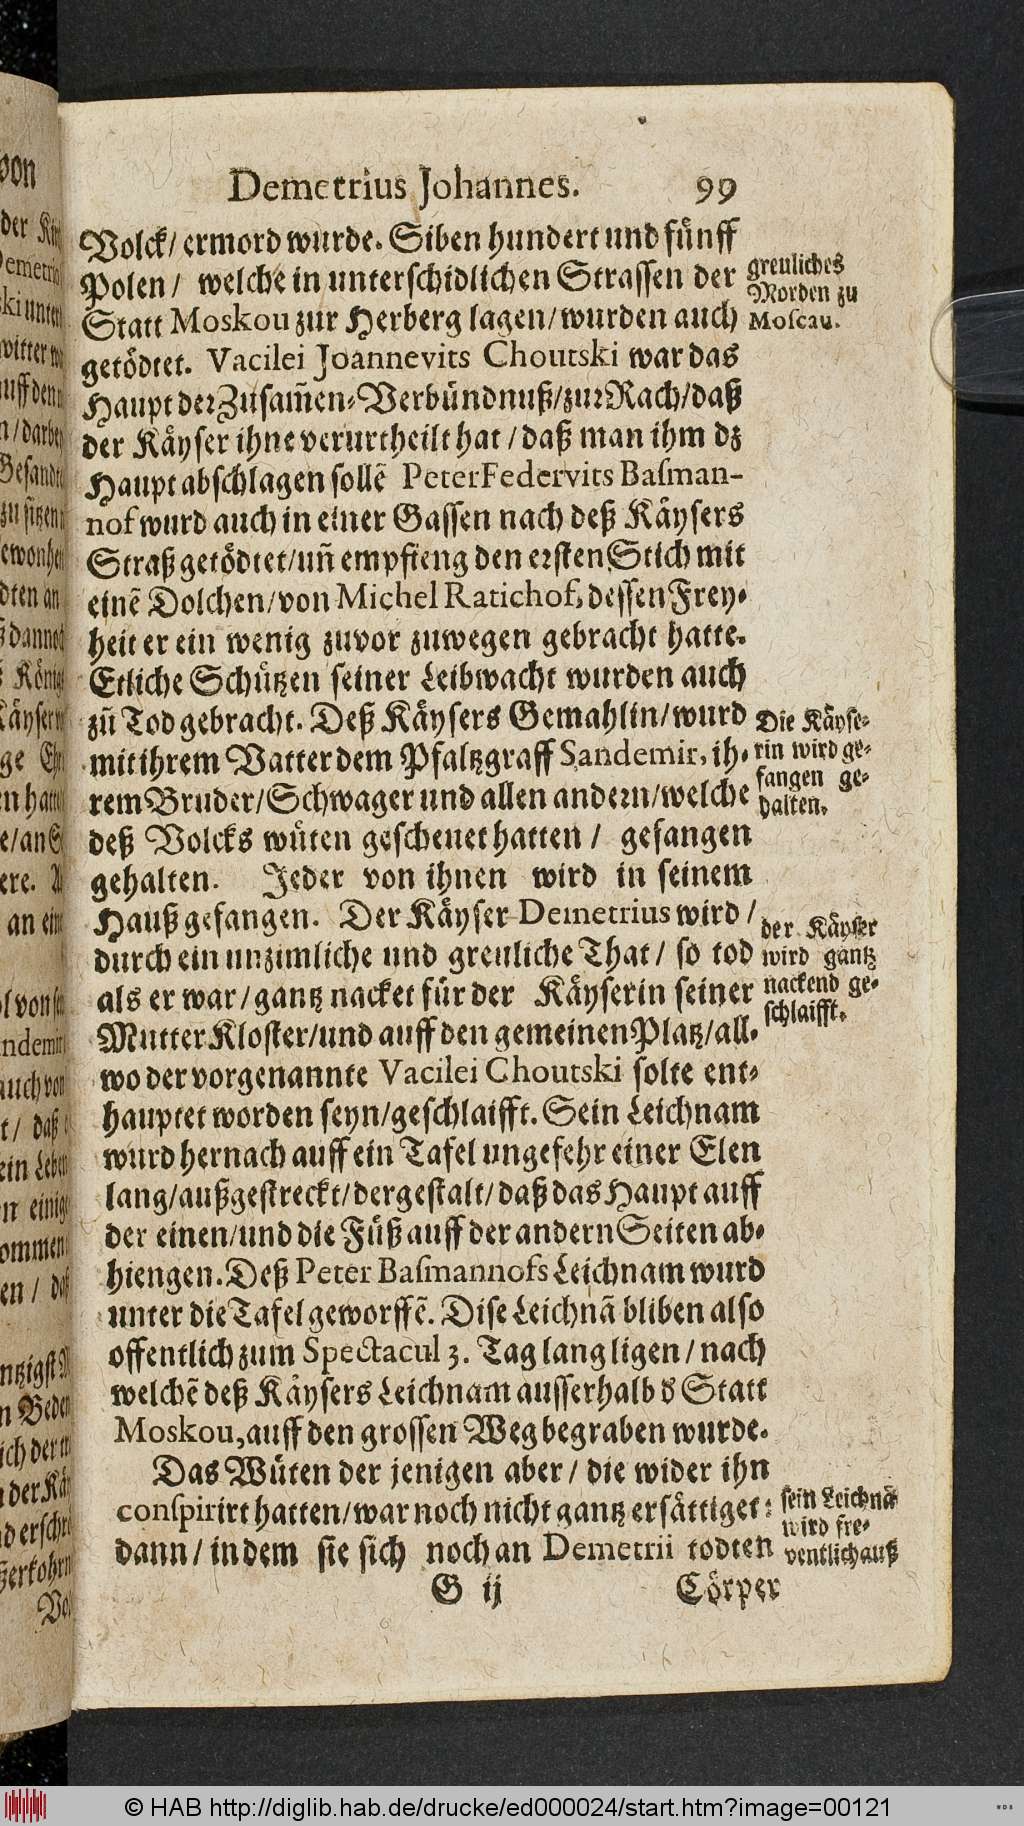 Demetrius Johannes. 99
Volck/ ermord wurde. Siben hundert und fünff
Polen/ welche in unterschidlichen Strassen der
Statt Moskou zur Herberg lagen/wurden auch
getödtet. Vacilei Joannevits Choutski war das
Haupt der Zusam̃en-Verbündnuß/zur Rach/daß
der Käyser ihne verurtheilt hat/daß man ihm dz
Haupt abschlagen sollẽ Peter Federvits Basman-
nof wurd auch in einer Gassen nach deß Käysers
Straß getödtet/uñ empfieng den ersten Stich mit
einẽ Dolchen/von Michel Ratichof, dessen Frey-
heit er ein wenig zuvor zuwegen gebracht hatte.
Etliche Schützen seiner Leibwacht wurden auch
zũ Tod gebracht. Deß Käysers Gemahlin/wurd
mit ihrem Vatter dem Pfaltzgraff Sandemir, ih-
rem Bruder/Schwager und allen andern/welche
deß Volcks wüten gescheuet hatten/ gefangen
gehalten. Jeder von ihnen wird in seinem
Hauß gefangen. Der Käyser Demetrius wird/
durch ein unzimliche und greuliche That/ so tod
als er war/gantz nacket für der Käyserin seiner
Mutter Kloster/und auff den gemeinen Platz/all-
wo der vorgenannte Vacilei Choutski solte ent-
hauptet worden seyn/geschlaifft. Sein Leichnam
wurd hernach auff ein Tafel ungefehr einer Elen
lang/außgestreckt/dergestalt/daß das Haupt auff
der einen/und die Füß auff der andern Seiten ab-
hiengen. Deß Peter Basmannofs Leichnam wurd
unter die Tafel geworffẽ. Dise Leichnã bliben also
offentlich zum Spectacul 3. Tag lang ligen/nach
welchẽ deß Käysers Leichnam ausserhalb d Statt
Moskou, auff den grossen Weg begraben wurde.
Das Wüten der jenigen aber/ die wider ihn
conspirirt hatten/war noch nicht gantz ersättiget:
dann/ indem sie sich noch an Demetrii todten
G ij Cörper
greuliches
Morden zu
Moscau.
Die Käyse-
rin wird ge-
fangen ge-
halten.
der Käyser
wird gantz
nackend ge-
schlaifft.
sein Leichnã
wird fre-
ventlich auß
von
Vol
© HAB http://diglib.hab.de/drucke/ed000024/start.htm?image=00121